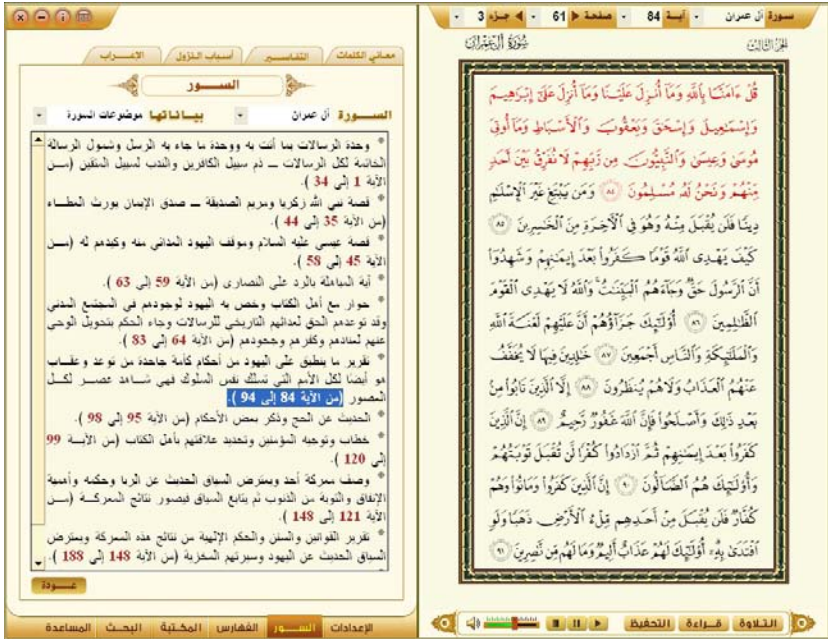 سورة آل عمران آية 84 صفحة 61 جزء 3
الجزء الثالث سورة آل عمران
قُلْ ءَامَنَّا بِٱللَّهِ وَمَآ أُنزِلَ عَلَيْنَا وَمَآ أُنزِلَ عَلَىٰٓ إِبْرَٰهِيمَ
وَإِسْمَٰعِيلَ وَإِسْحَٰقَ وَيَعْقُوبَ وَٱلْأَسْبَاطِ وَمَآ أُوتِىَ
مُوسَىٰ وَعِيسَىٰ وَٱلنَّبِيُّونَ مِن رَّبِّهِمْ لَا نُفَرِّقُ بَيْنَ أَحَدٍ
مِّنْهُمْ وَنَحْنُ لَهُۥ مُسْلِمُونَ ٨٤ وَمَن يَبْتَغِ غَيْرَ ٱلْإِسْلَٰمِ
دِينًا فَلَن يُقْبَلَ مِنْهُ وَهُوَ فِى ٱلْأَخِرَةِ مِنَ ٱلْخَٰسِرِينَ ٨٥
كَيْفَ يَهْدِى ٱللَّهُ قَوْمًا كَفَرُوا۟ بَعْدَ إِيمَٰنِهِمْ وَشَهِدُوٓا۟
أَنَّ ٱلرَّسُولَ حَقٌّ وَجَآءَهُمُ ٱلْبَيِّنَٰتُ وَٱللَّهُ لَا يَهْدِى ٱلْقَوْمَ
ٱلظَّٰلِمِينَ ٨٦ أُو۟لَٰٓئِكَ جَزَآؤُهُمْ أَنَّ عَلَيْهِمْ لَعْنَةَ ٱللَّهِ
وَٱلْمَلَٰٓئِكَةِ وَٱلنَّاسِ أَجْمَعِينَ ٨٧ خَٰلِدِينَ فِيهَا لَا يُخَفَّفُ
عَنْهُمُ ٱلْعَذَابُ وَلَا هُمْ يُنظَرُونَ ٨٨ إِلَّا ٱلَّذِينَ تَابُوا۟ مِنۢ
بَعْدِ ذَٰلِكَ وَأَصْلَحُوا۟ فَإِنَّ ٱللَّهَ غَفُورٌ رَّحِيمٌ ٨٩ إِنَّ ٱلَّذِينَ
كَفَرُوا۟ بَعْدَ إِيمَٰنِهِمْ ثُمَّ ٱزْدَادُوا۟ كُفْرًا لَّن تُقْبَلَ تَوْبَتُهُمْ
وَأُو۟لَٰٓئِكَ هُمُ ٱلضَّآلُّونَ ٩٠ إِنَّ ٱلَّذِينَ كَفَرُوا۟ وَمَاتُوا۟ وَهُمْ
كُفَّارٌ فَلَن يُقْبَلَ مِنْ أَحَدِهِم مِّلْءُ ٱلْأَرْضِ ذَهَبًا وَلَوِ
ٱفْتَدَىٰ بِهِۦٓ أُو۟لَٰٓئِكَ لَهُمْ عَذَابٌ أَلِيمٌ وَمَا لَهُم مِّن نَّٰصِرِينَ ٩١
التلاوة قراءة التحفيظ
معاني الكلمات التفاسير أسباب النزول الإعراب
السور
السورة آل عمران بياناتها موضوعات السورة
* وحدة الرسالات بما أتت به ووحدة ما جاء به الرسل وشمول الرسالة
الخاتمة لكل الرسالات – ذم سبيل الكافرين والندب لسبيل المتقين (من
الآية 1 إلى 34 ).
* قصة نبي الله زكريا ومريم الصديقة – صدق الإيمان يورث العطاء
(من الآية 35 إلى 44 ).
* قصة عيسى عليه السلام وموقف اليهود العدائي منه وكيدهم له (من
الآية 45 إلى 58 ).
* آية المباهلة بالرد على النصارى (من الآية 59 إلى 63 ).
* حوار مع أهل الكتاب وخص به اليهود لوجودهم في المجتمع المدني
وقد توعدهم الحق لعدائهم التاريخي للرسالات وجاء الحكم بتحويل الوحي
عنهم لعنادهم وكفرهم وجحودهم (من الآية 64 إلى 83 ).
* تقرير ما ينطبق على اليهود من أحكام كأمة جاحدة من توعد وعقاب
هو أيضًا لكل الأمم التي تسلك نفس السلوك فهي شاهد عصر لكل
العصور (من الآية 84 إلى 94 ).
* الحديث عن الحج وذكر بعض الأحكام (من الآية 95 إلى 98 ).
* خطاب وتوجيه المؤمنين وتحديد علاقتهم بأهل الكتاب (من الآية 99
إلى 120 ).
* وصف معركة أحد ويعترض السياق الحديث عن الربا وحكمه وأهمية
الإنفاق والتوبة من الذنوب ثم يتابع السياق فيصور نتائج المعركة (من
الآية 121 إلى 148 ).
* تقرير القوانين والسنن والحكم الإلهية من نتائج هذه المعركة ويعترض
السياق الحديث عن اليهود وسيرتهم المخزية (من الآية 148 إلى 188 ).
عودة
الإعدادات السور الفهارس المكتبة البحث المساعدة